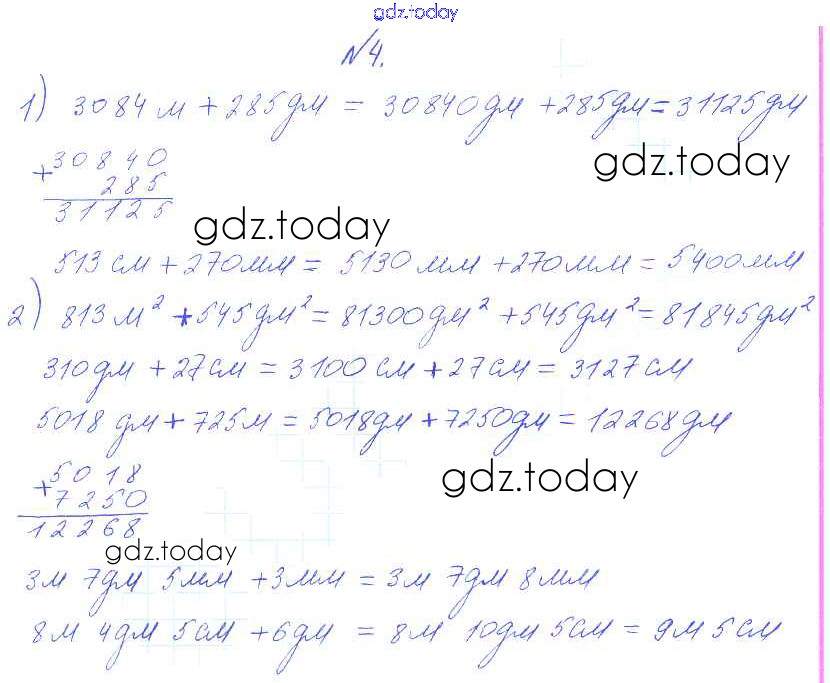 gdz.today
№4.
1) 3084 м + 285 дм = 30840 дм + 285 дм = 31125 дм
gdz.today
+ 30840
285
31125
gdz.today
513 см + 270 мм = 5130 мм + 270 мм = 5400 мм
2) 813 м² + 545 дм² = 81300 дм² + 545 дм² = 81845 дм²
310 дм + 27 см = 3100 см + 27 см = 3127 см
5018 дм + 725 м = 5018 дм + 7250 дм = 12268 дм
+ 5018
7250
12268
gdz.today
gdz.today
3м 7дм 5мм + 3мм = 3м 7дм 8мм
8м 4дм 5см + 6дм = 8м 10дм 5см = 9м 5см